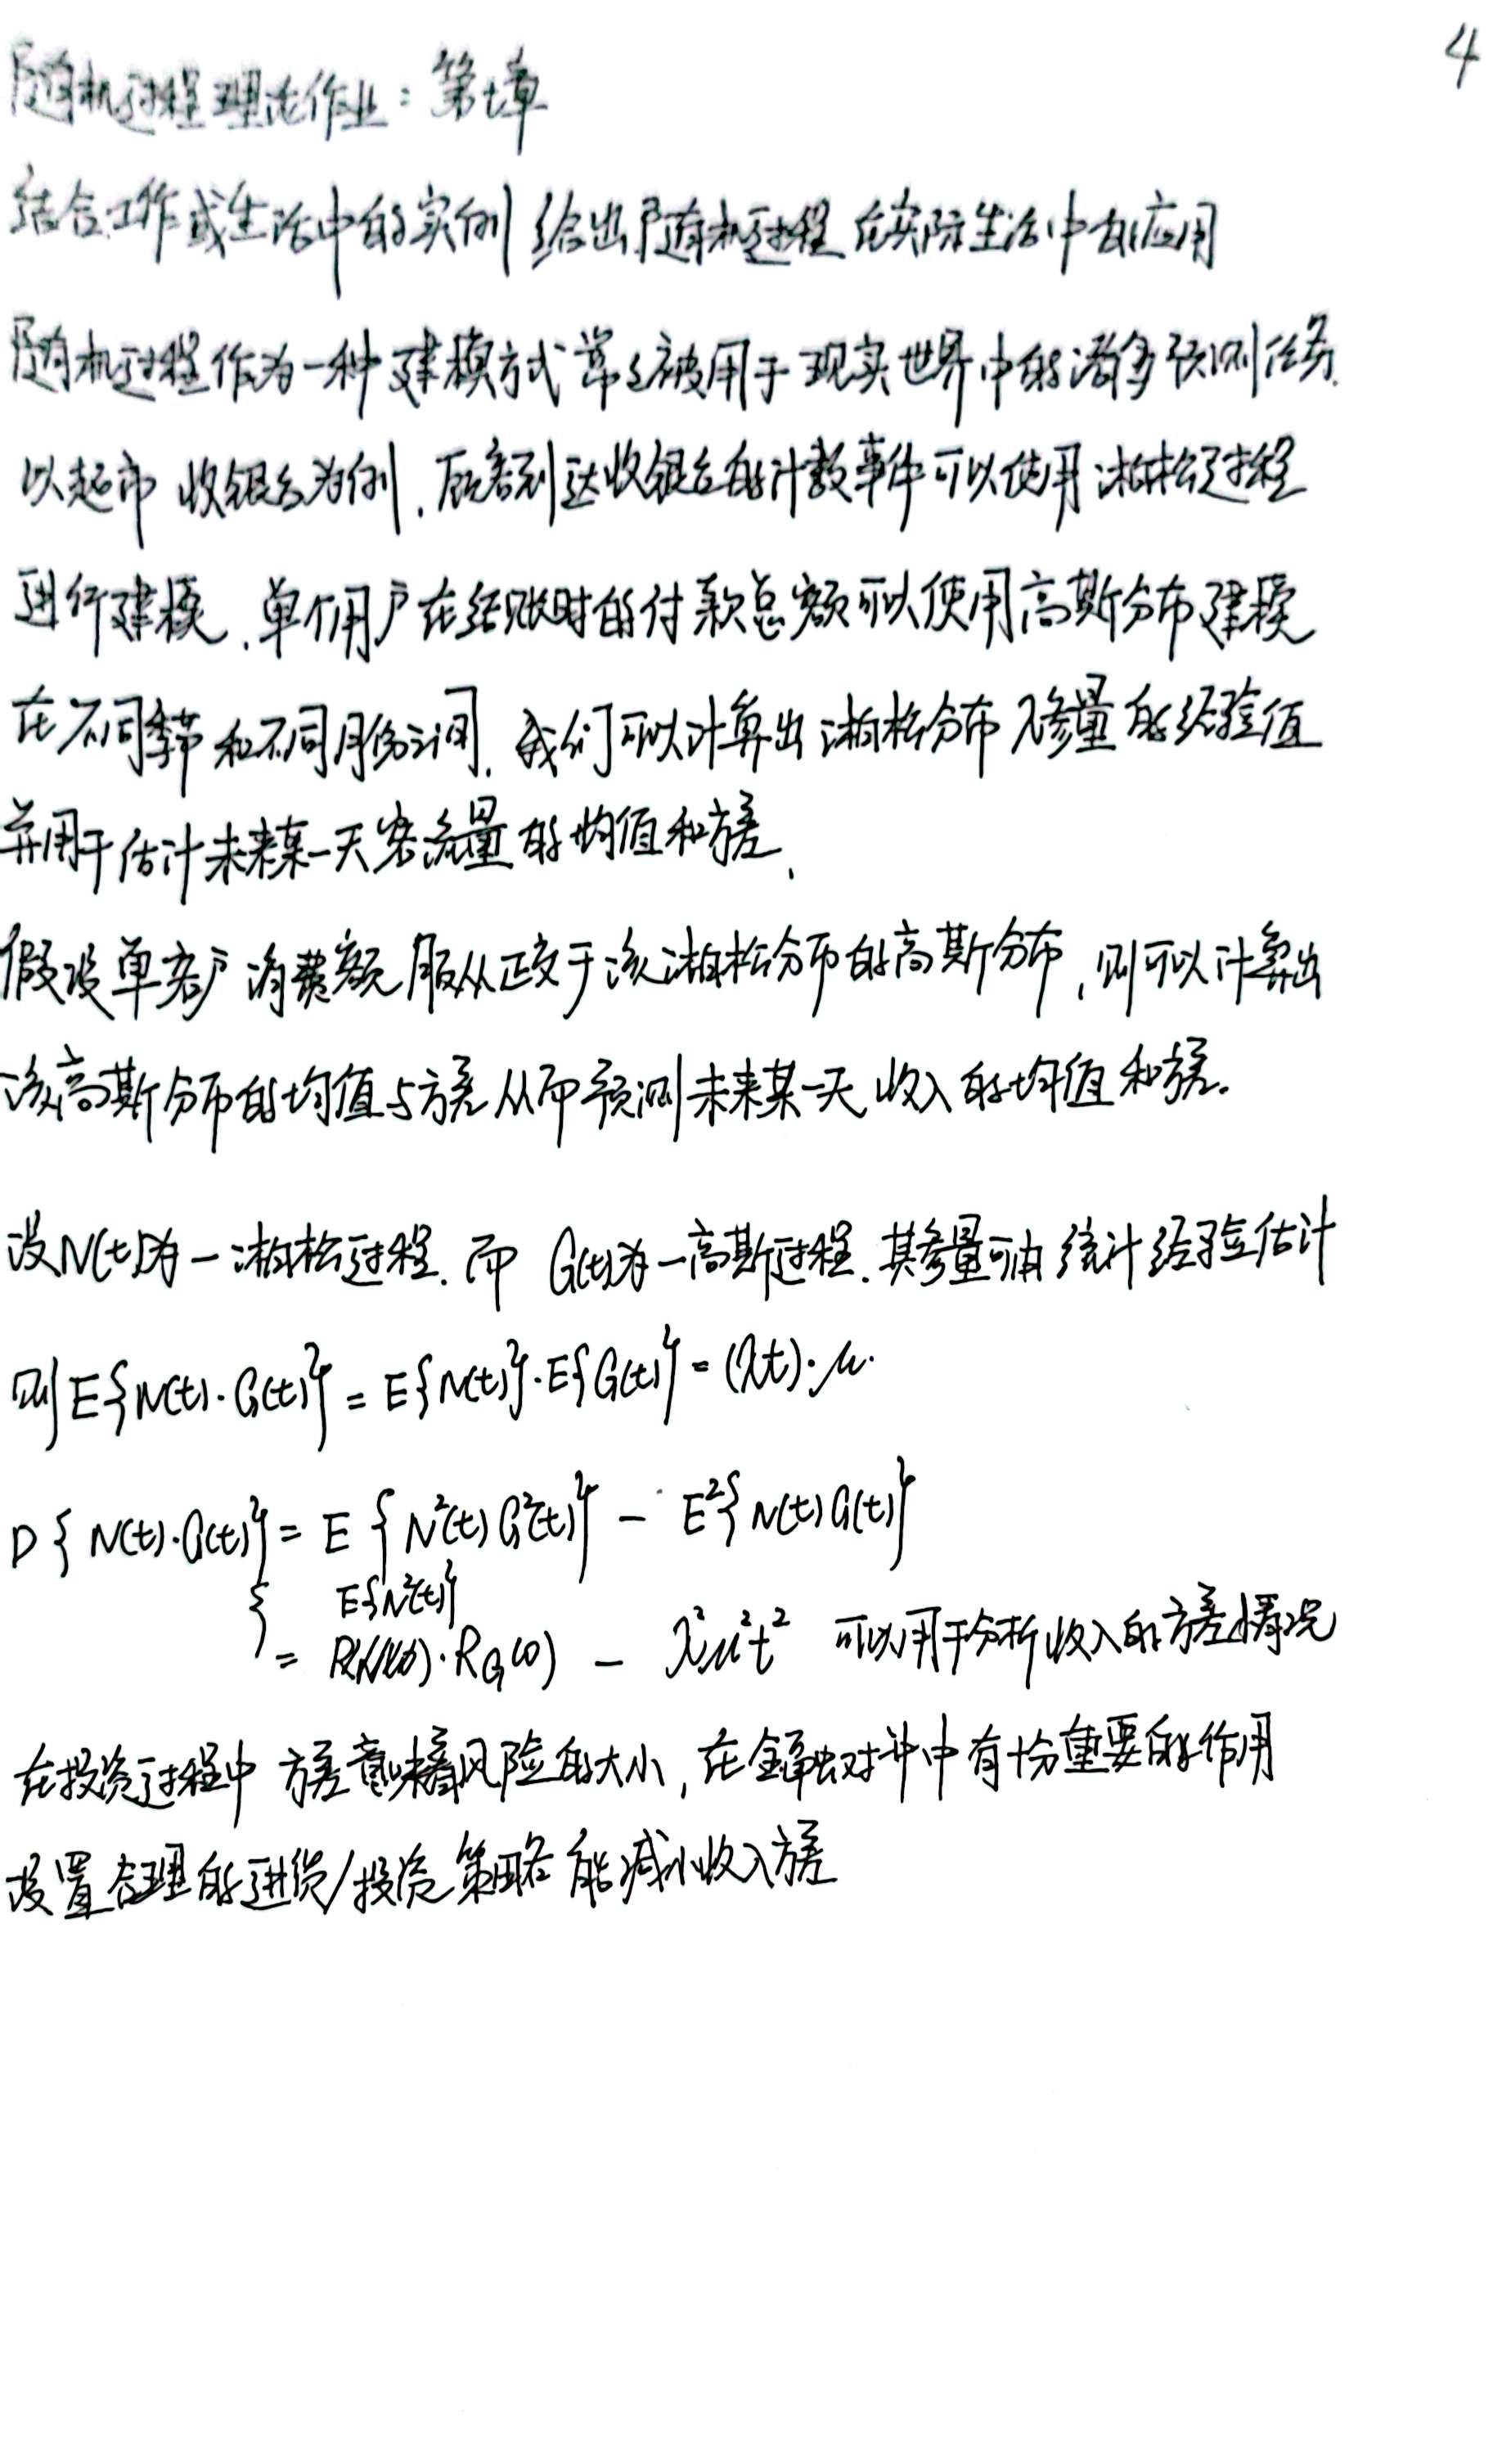 4
随机过程理论作业：第七章
结合工作或生活中的实例 给出随机过程在实际生活中的应用
随机过程作为一种建模方式常常被用于现实世界中的诸多预测任务.
以超市 收银台为例, 顾客到达收银台的计数事件可以使用泊松过程
进行建模, 单个用户在结账时的付款总额可以使用高斯分布建模
在不同季节和不同月份之间, 我们可以计算出泊松分布λ参量的经验值
并用于估计未来某一天客流量的均值和方差,
假设单客户消费额服从正交于该泊松分布的高斯分布, 则可以计算出
该高斯分布的均值与方差从而预测未来某一天收入的均值和方差.
设N(t)为一泊松过程. 而 G(t)为一高斯过程. 其参量可由统计经验估计
则E{N(t)·G(t)} = E{N(t)}·E{G(t)} = (λt)·μ.
D{N(t)·G(t)} = E{N²(t)G²(t)} - E²{N(t)G(t)}
E{N²(t)}
= ·R_G(0) - λ²μ²t² 可以用于分析收入的方差情况
在投资过程中 方差意味着风险的大小, 在金融对冲中有十分重要的作用
设置合理的进货/投资策略能减小收入方差